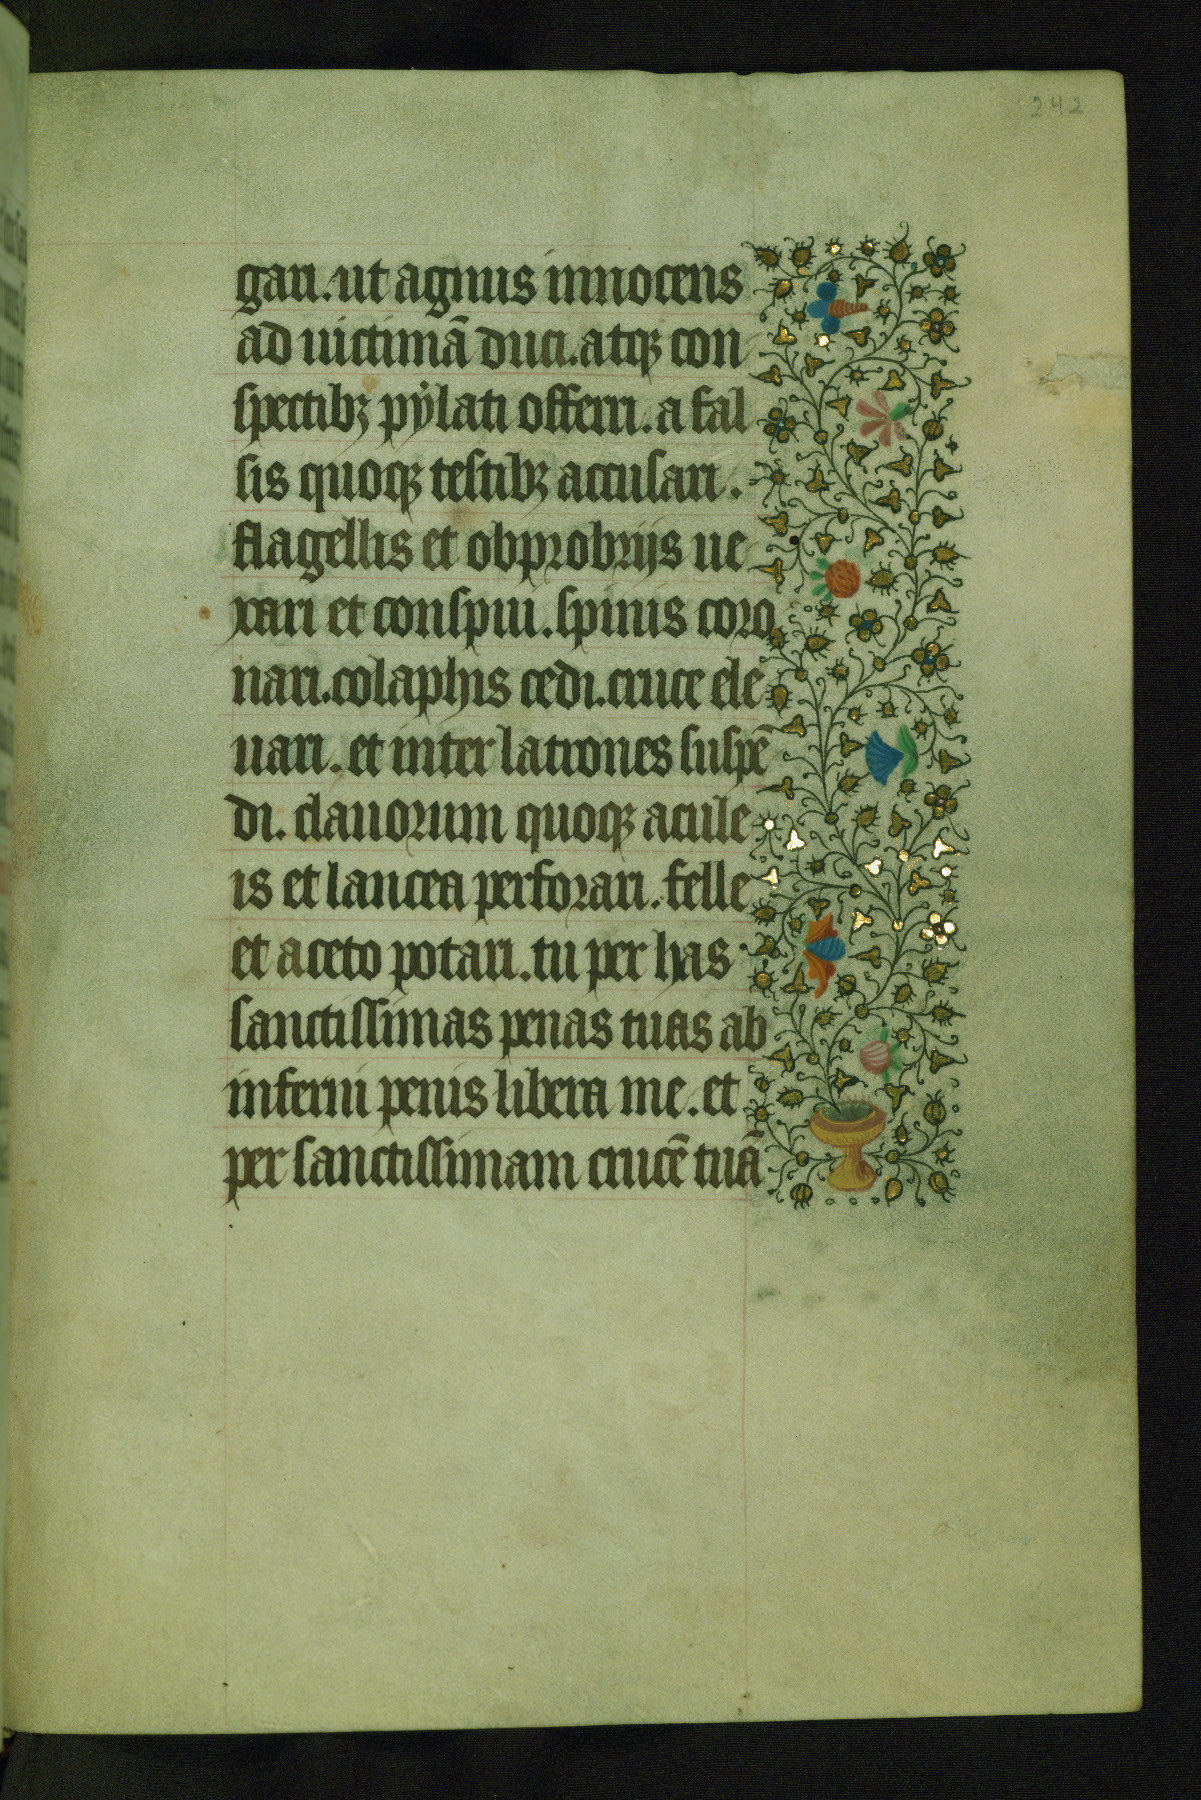 242
gari. ut agnus innocens
ad uictimā duci. atqꝫ con
spectibꝫ pẏlati offerri. a fal
sis quoqꝫ testibꝫ accusari.
flagellis et obprobrijs ue
xari et conspui. spinis coro
nari. colaphis cedi. cruce ele
uari. et inter latrones suspē
di. clauorum quoqꝫ acule
is et lancea perforari. felle
et aceto potari. tu per has
sanctissimas penas tuas ab
inferni penis libera me. et
per sanctissimam crucē tuā